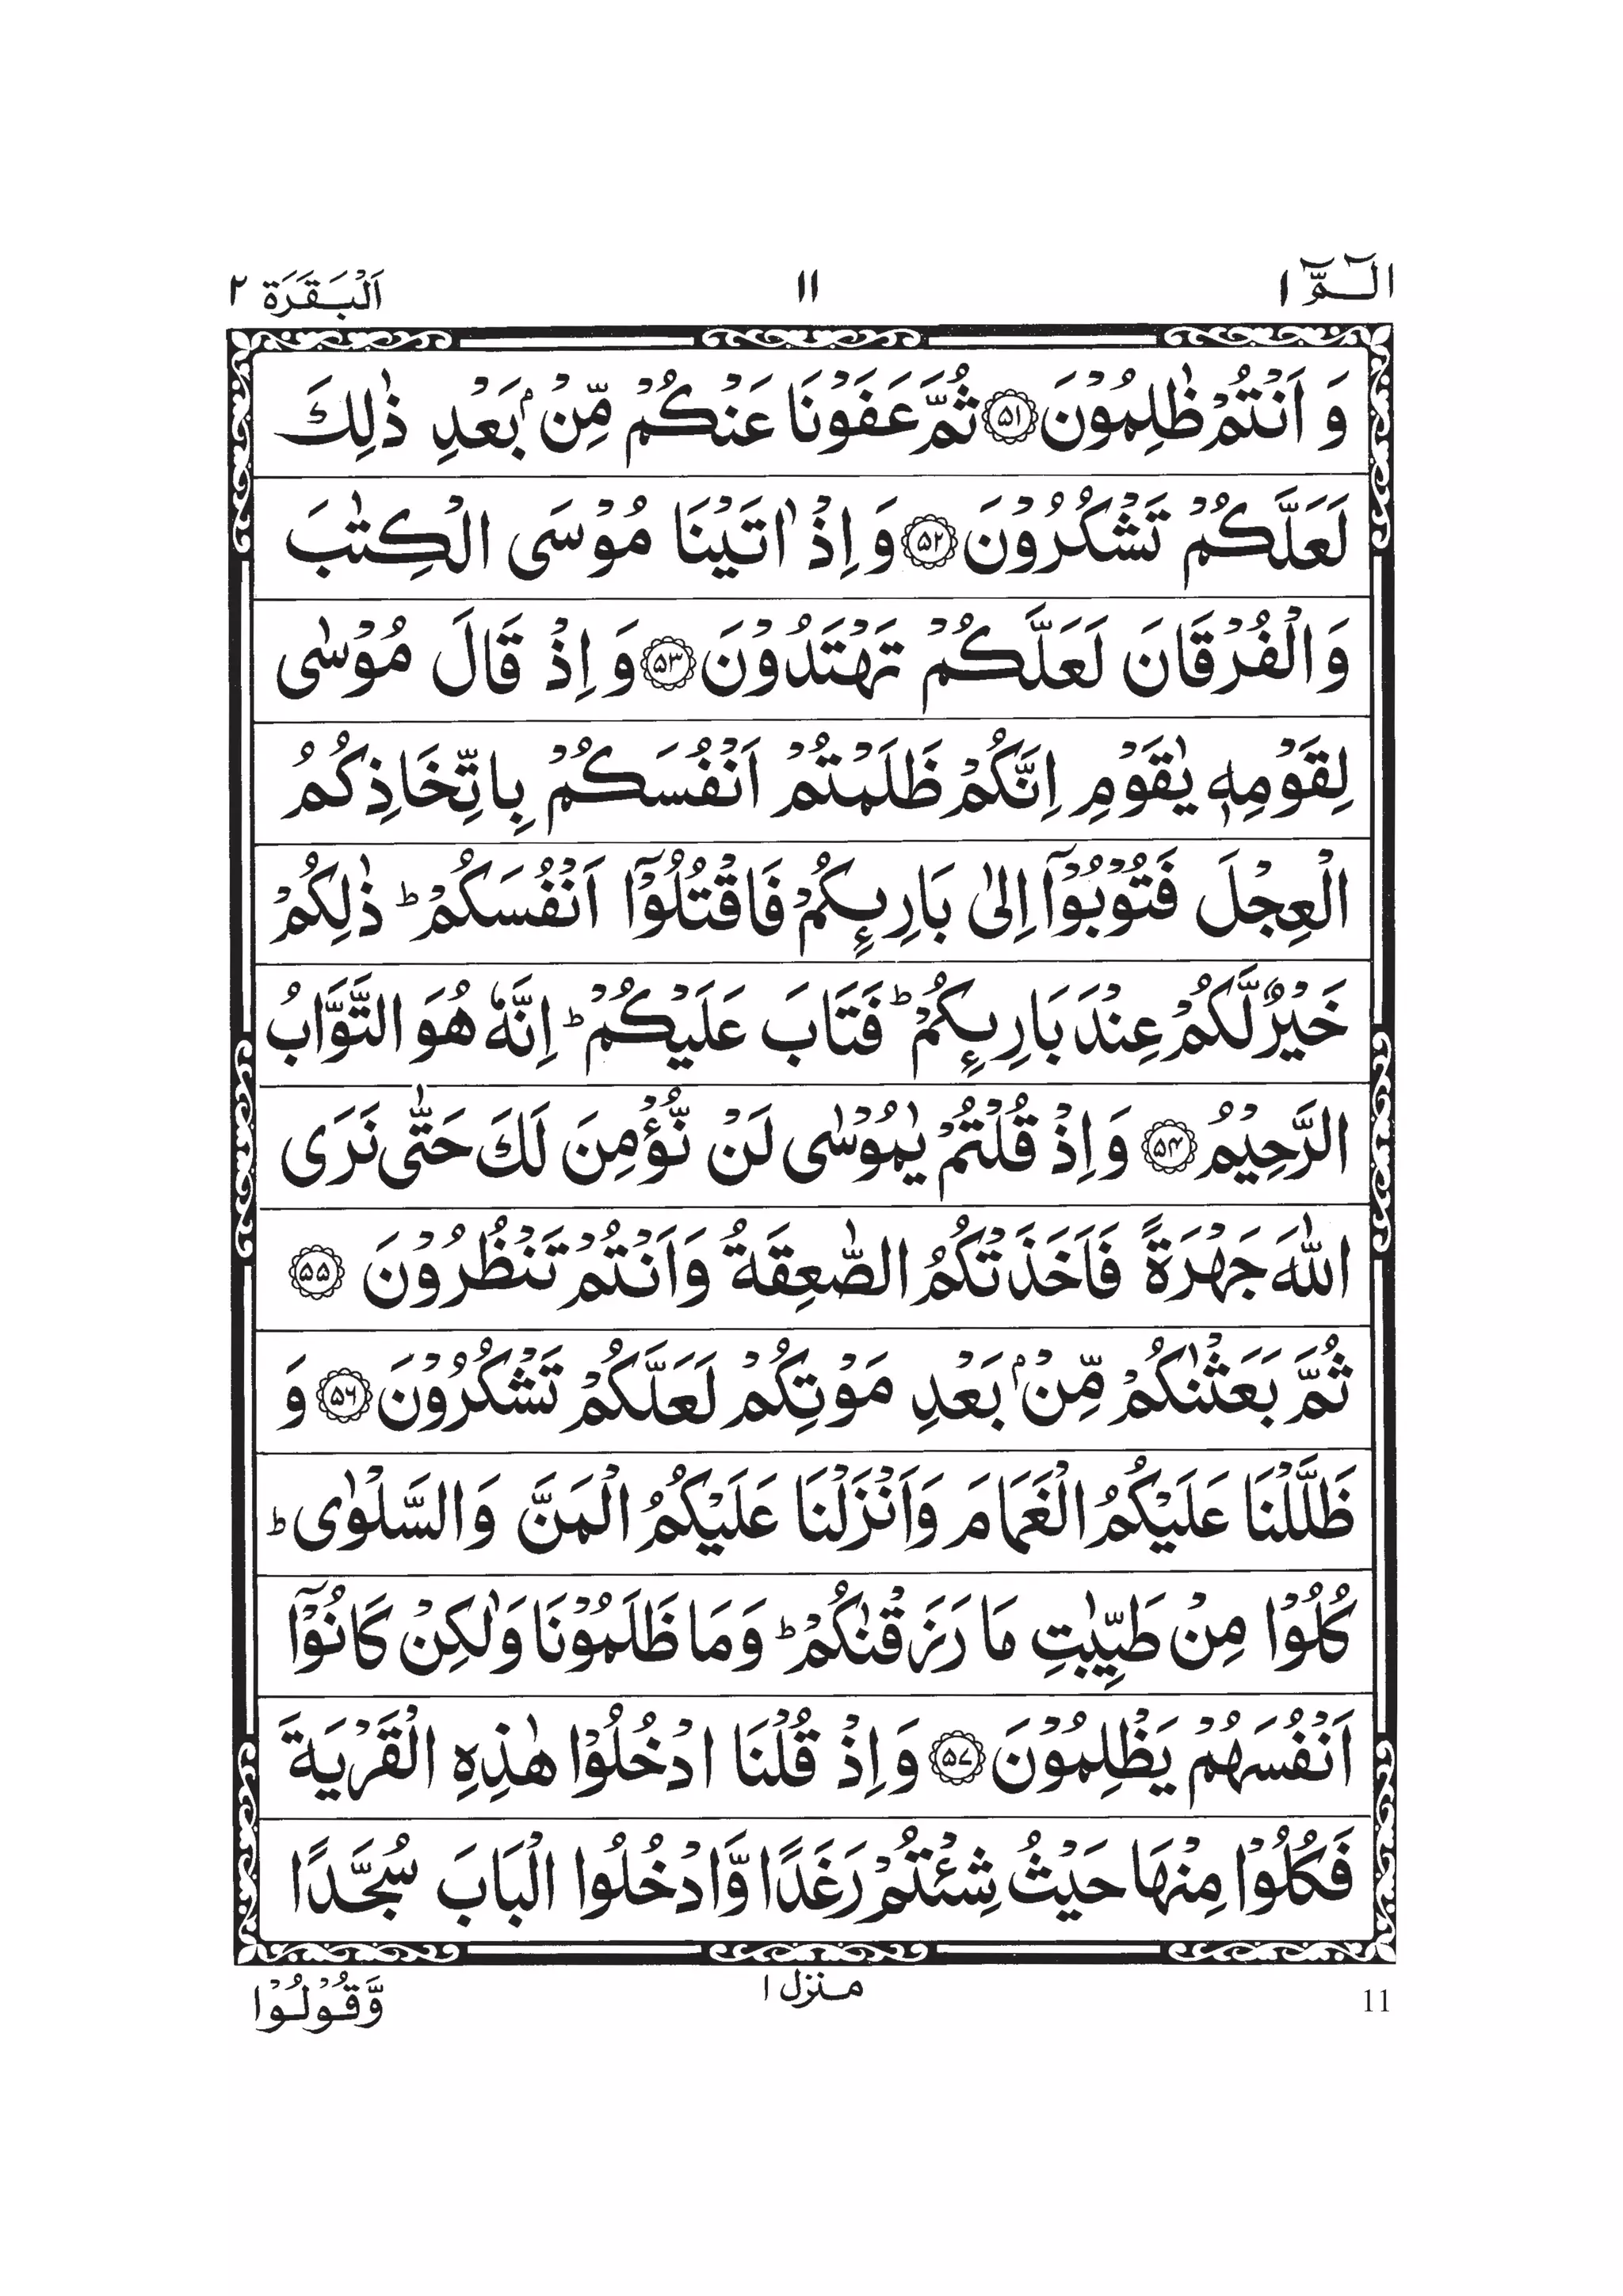 الٓـمّٓ ١ ١١ اَلْبَـقَـرَة ٢
وَ اَنْتُمْ ظٰلِمُوْنَ ﴿۵۱﴾ ثُمَّ عَفَوْنَا عَنْكُمْ مِّنْۢ بَعْدِ ذٰلِكَ
لَعَلَّكُمْ تَشْكُرُوْنَ ﴿۵۲﴾ وَ اِذْ اٰتَيْنَا مُوْسَى الْكِتٰبَ
وَالْفُرْقَانَ لَعَلَّكُمْ تَهْتَدُوْنَ ﴿۵۳﴾ وَ اِذْ قَالَ مُوْسٰى
لِقَوْمِهٖ يٰقَوْمِ اِنَّكُمْ ظَلَمْتُمْ اَنْفُسَكُمْ بِاتِّخَاذِكُمُ
الْعِجْلَ فَتُوْبُوْٓا اِلٰى بَارِىِٕكُمْ فَاقْتُلُوْٓا اَنْفُسَكُمْ ؕ ذٰلِكُمْ
خَيْرٌ لَّكُمْ عِنْدَ بَارِىِٕكُمْ ؕ فَتَابَ عَلَيْكُمْ ؕ اِنَّهٗ هُوَ التَّوَّابُ
الرَّحِيْمُ ﴿۵۴﴾ وَاِذْ قُلْتُمْ يٰمُوْسٰى لَنْ نُّؤْمِنَ لَكَ حَتّٰى نَرَى
اللّٰهَ جَهْرَةً فَاَخَذَتْكُمُ الصّٰعِقَةُ وَاَنْتُمْ تَنْظُرُوْنَ ﴿۵۵﴾
ثُمَّ بَعَثْنٰكُمْ مِّنْۢ بَعْدِ مَوْتِكُمْ لَعَلَّكُمْ تَشْكُرُوْنَ ﴿۵۶﴾ وَ
ظَلَّلْنَا عَلَيْكُمُ الْغَمَامَ وَاَنْزَلْنَا عَلَيْكُمُ الْمَنَّ وَالسَّلْوٰى ؕ
كُلُوْا مِنْ طَيِّبٰتِ مَا رَزَقْنٰكُمْ ؕ وَمَا ظَلَمُوْنَا وَلٰكِنْ كَانُوْٓا
اَنْفُسَهُمْ يَظْلِمُوْنَ ﴿۵۷﴾ وَاِذْ قُلْنَا ادْخُلُوْا هٰذِهِ الْقَرْيَةَ
فَكُلُوْا مِنْهَا حَيْثُ شِئْتُمْ رَغَدًا وَّادْخُلُوا الْبَابَ سُجَّدًا
وَّقُوْلُوْا منزل ١ 11